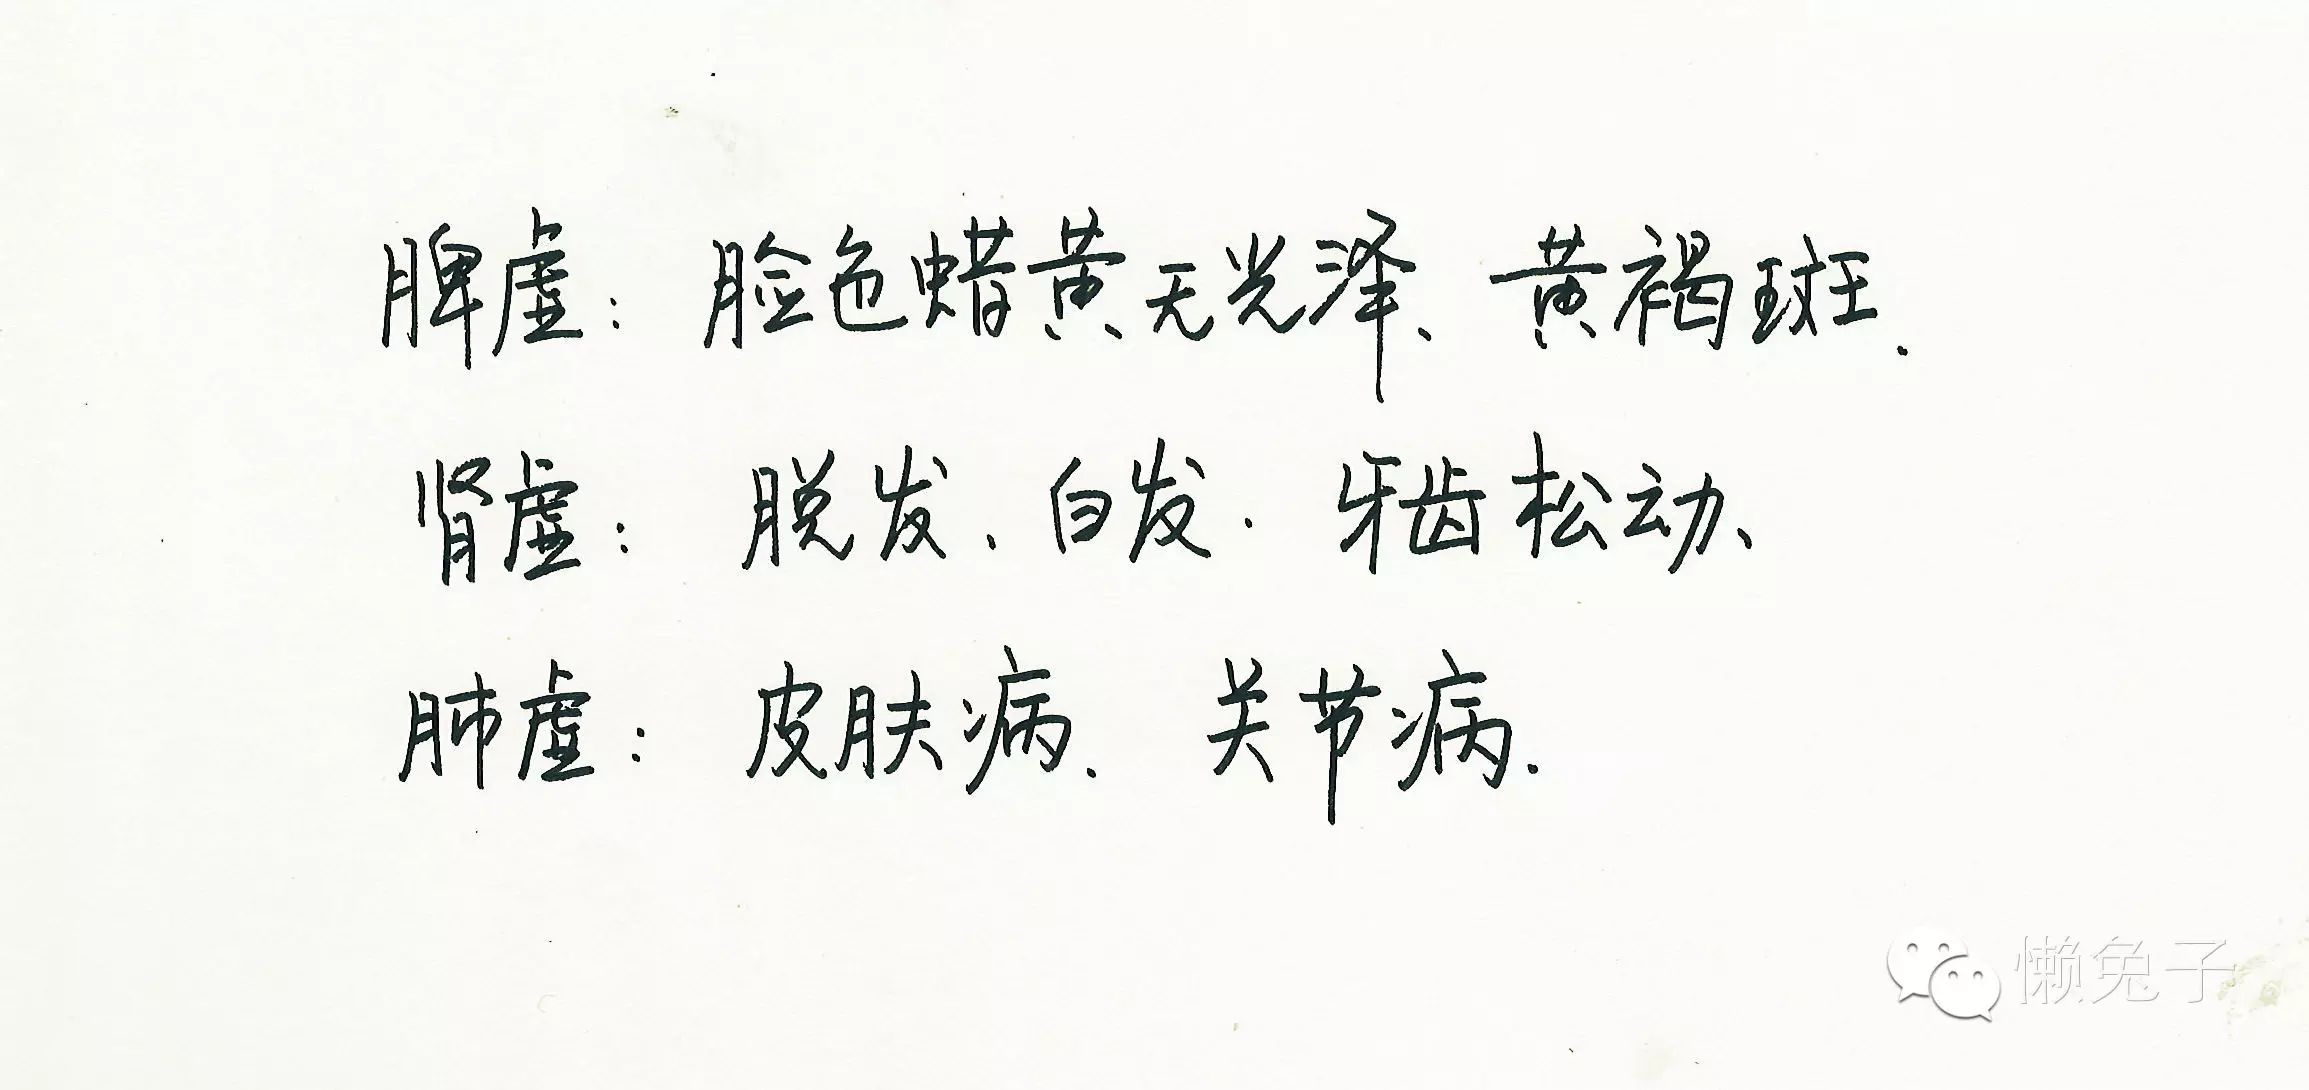 脾虚：脸色蜡黄无光泽、黄褐斑.
肾虚：脱发、白发.牙齿松动、
肺虚：皮肤病.关节病.
懒兔子